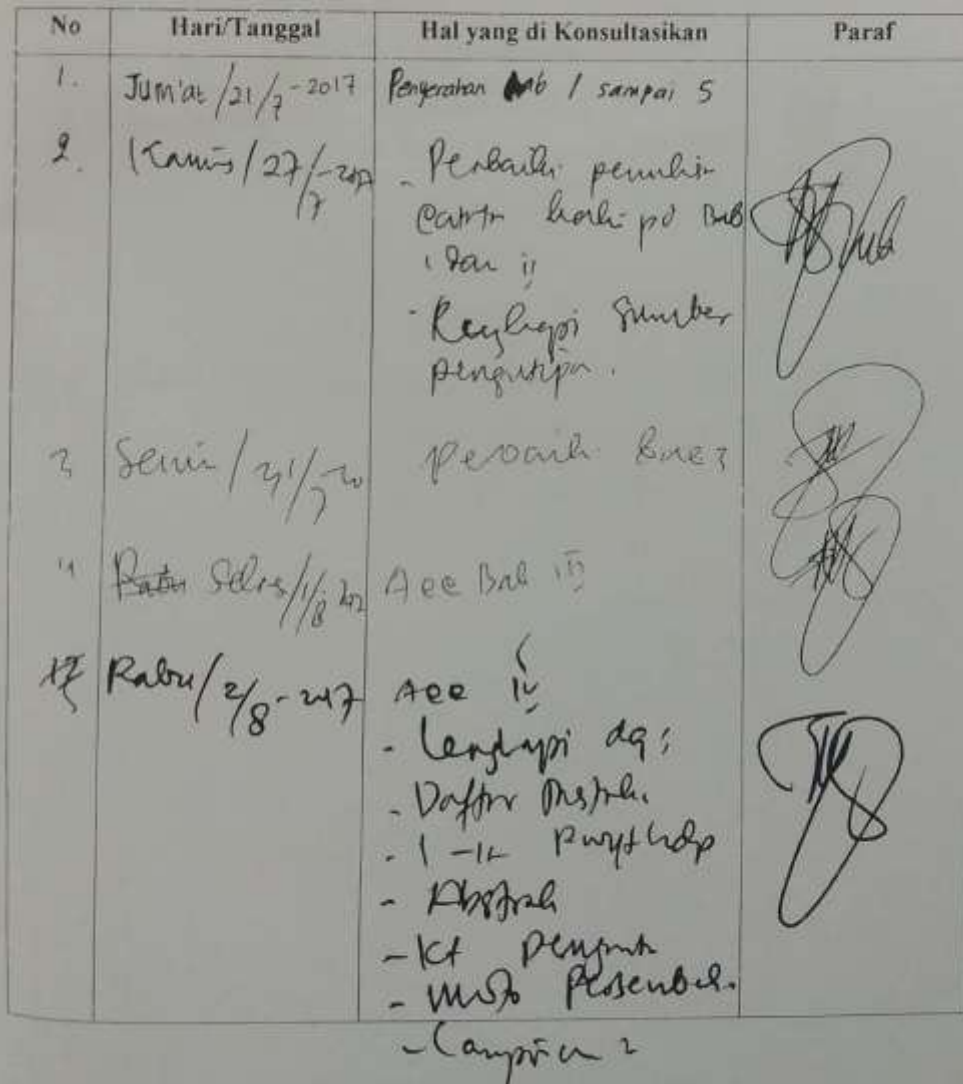 No Hari/Tanggal Hal yang di Konsultasikan Paraf
1. Jum'at /21/7-2017 Penyerahan bab 1 sampai 5
2. Kamis /27/7-2017 - Perbaiki penulisn
catatn kaki pd Bab
i dan ii
- Lengkapi Sumber
pengutipn.
3 Senin / 31/7-20 perbaiki Bab 3
4 Rabu Selas/1/8 201 Acc Bab iii
Rabu/2/8-2017 Acc iv
- Lengkapi dg:
- Daftr Pustak.
- Abstrak
- Kt Pengant
- Motto Persembah.
- Lampiran 2